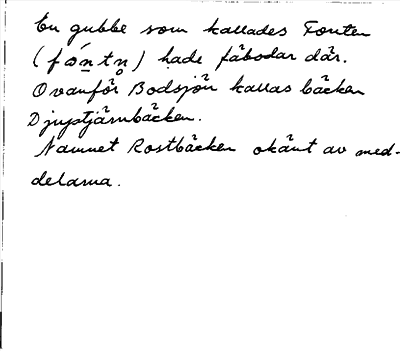 En gubbe som kallades Fonten
(fó̱ntn̥) hade fäbodar där.
Ovanför Bodsjön kallas bäcken
Djuptjärnbäcken.
Namnet Rostbäcken okänt av med-
delarna.